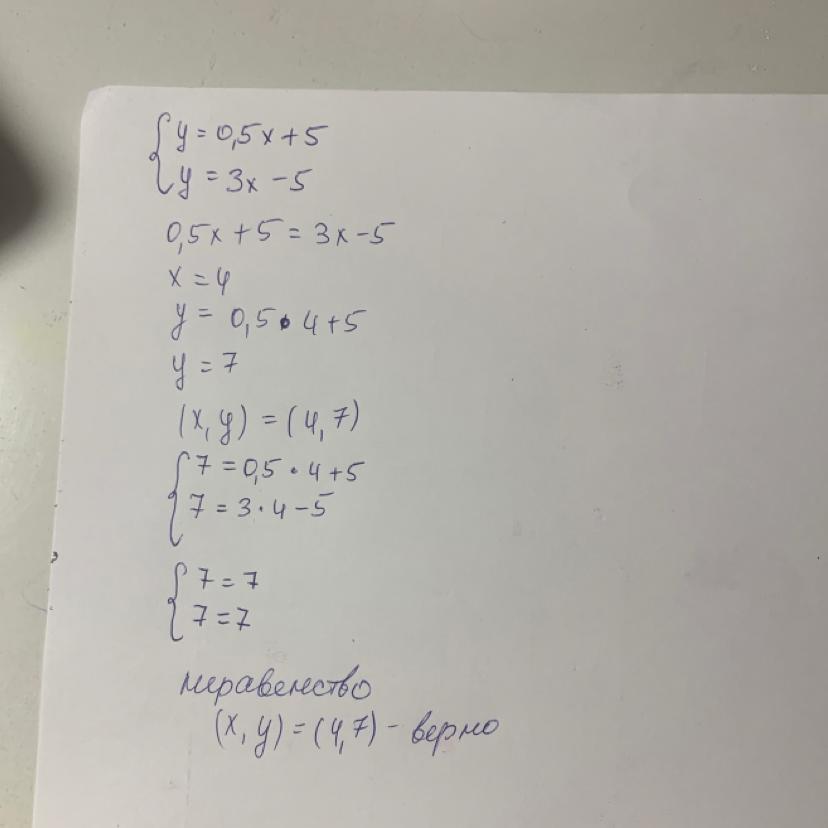 { y = 0,5x + 5
{ y = 3x - 5
0,5x + 5 = 3x - 5
x = 4
y = 0,5 • 4 + 5
y = 7
(x, y) = (4, 7)
{ 7 = 0,5 · 4 + 5
{ 7 = 3 · 4 - 5
{ 7 = 7
{ 7 = 7
неравенство
(x, y) = (4, 7) - верно